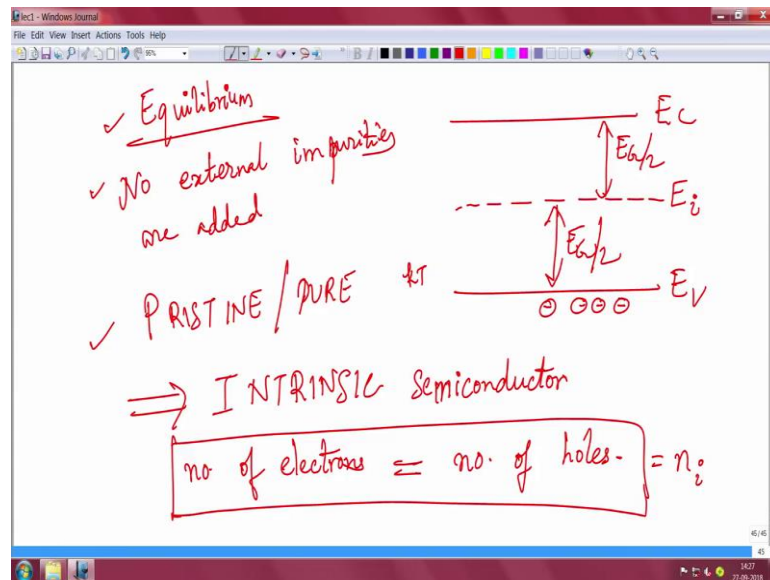 lec1 - Windows Journal
File Edit View Insert Actions Tools Help
86%
B I
✓ Equilibrium
✓ No external impurities
are added
✓ PRISTINE / PURE
kT
⇒ INTRINSIC Semiconductor
no of electrons = no. of holes. = n_i
E_C
E_G/2
E_i
E_G/2
E_V
⊖ ⊖⊖⊖
45/45
45
14:27
27-09-2018